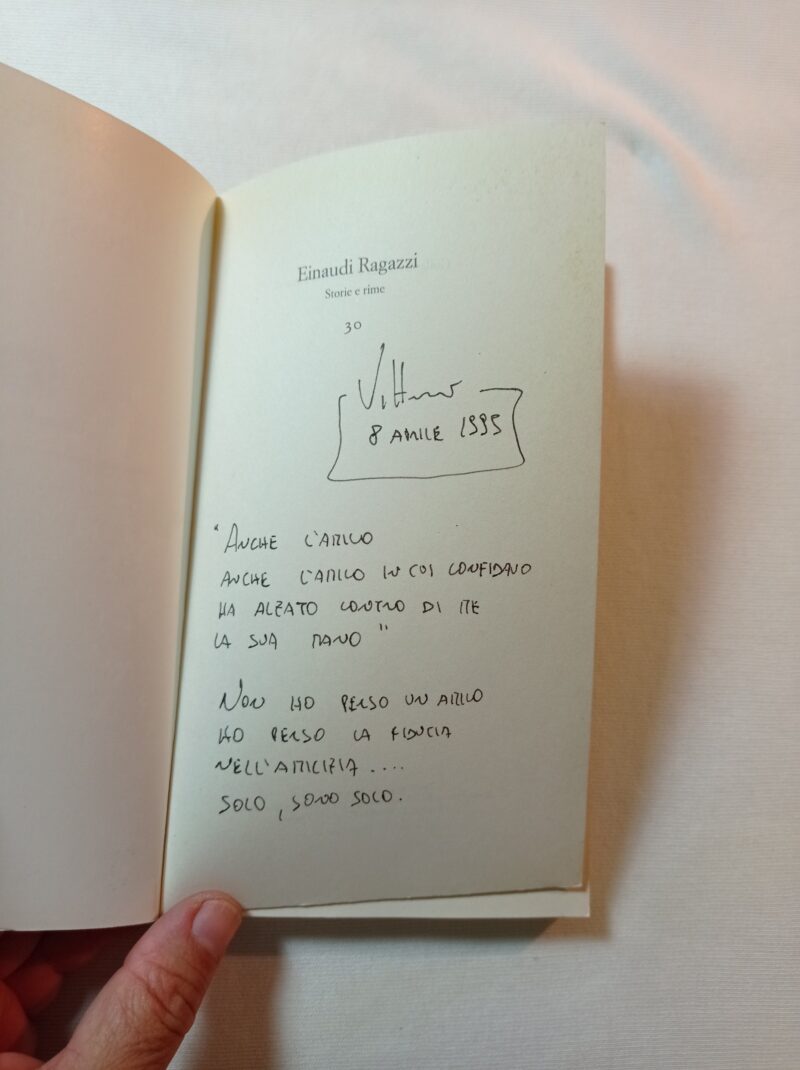 Einaudi Ragazzi
Storie e rime
30
Vittorio
8 APRILE 1995
"ANCHE L'AMICO
ANCHE L'AMICO IN CUI CONFIDAVO
HA ALZATO CONTRO DI ME
LA SUA MANO"
NON HO PERSO UN AMICO
HO PERSO LA FIDUCIA
NELL'AMICIZIA....
SOLO, SONO SOLO.